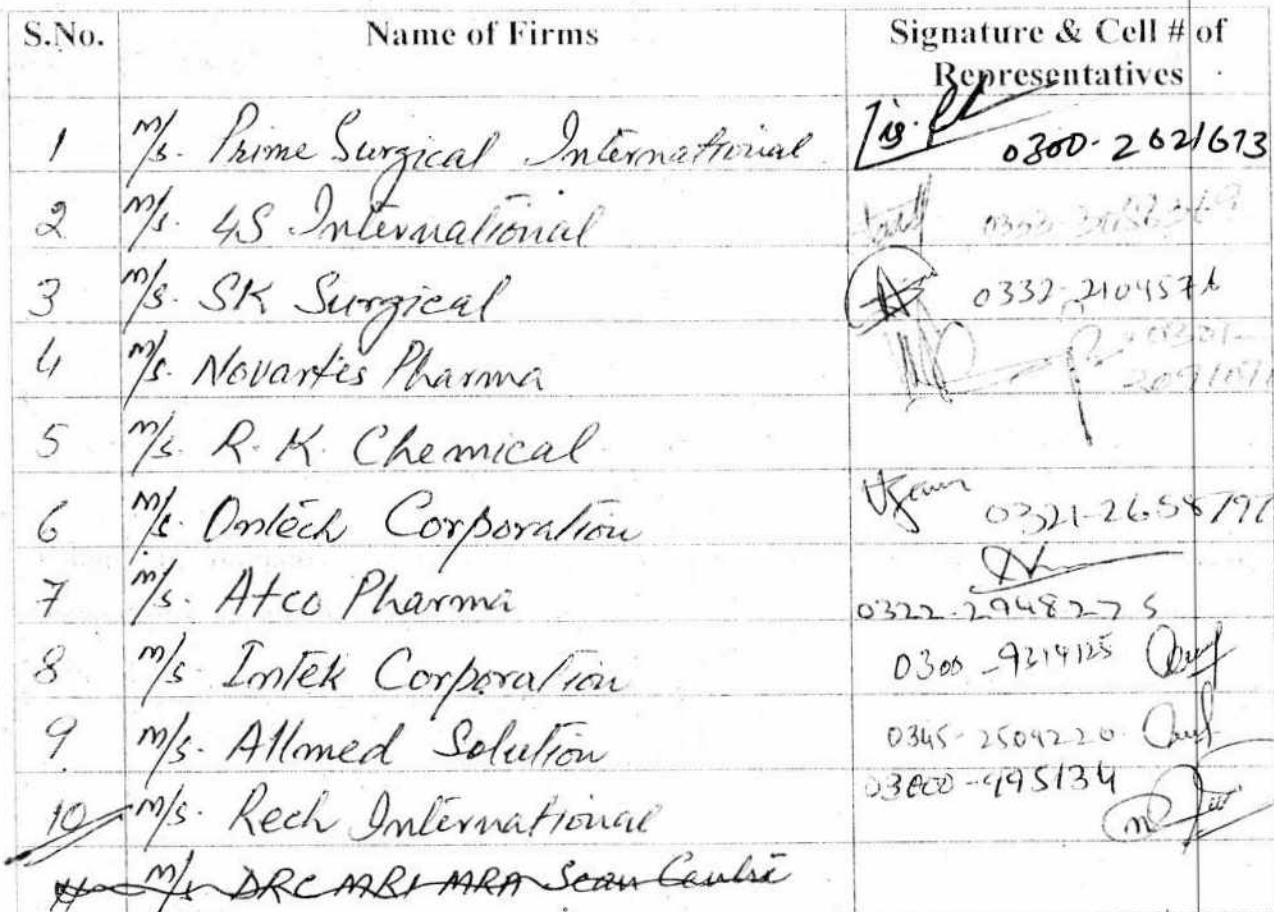 S.No. Name of Firms Signature & Cell # of
Representatives
1 M/s. Prime Surgical International 0300-2621673
2 M/s. 4S International
3 M/s. SK Surgical 0332-210457
4 M/s. Novartis Pharma 0301-
5 M/s. R.K. Chemical
6 M/s. Ontech Corporation 0321-2658797
7 M/s. Atco Pharma
0322-2948275
8 M/s. Intek Corporation 0300-9319125
9 M/s. Allmed Solution 0345-2509220
10 M/s. Rech International
M/s. DRC MRI MRA Scan Centre